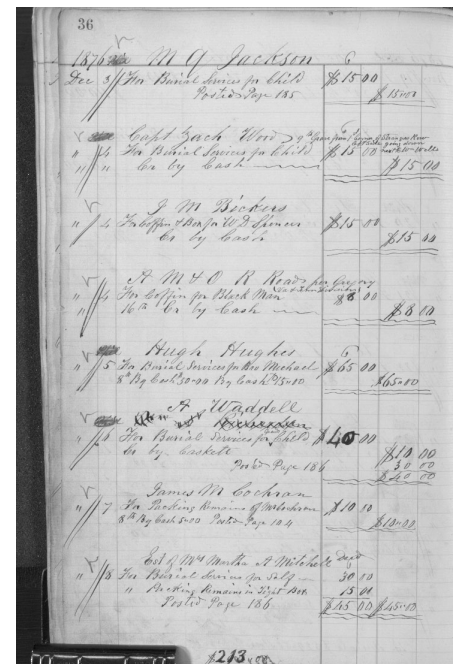 36
1876 M G Jackson
Dec 3 For Burial Services for Child $15 00
Posted Page 185 $15 00
Capt Zach Word
" 4 For Burial Services for Child $15 00
" " Cr by Cash $15 00
J M Bickers
" 4 For Coffin & Box for W D Spencer $15 00
Cr by Cash $15 00
A M & O R Road per Gregory
" 4 For Coffin for Black Man $8 00
16th Cr by Cash $8 00
Hugh Hughes
" 5 For Burial Services for Bro Michael $65 00
8th By Cash 50 00 By Cash 15 00 $65 00
A Waddell
" 4 For Burial Services for Child $40 00
Cr by Caskett $10 00
30 00
Posted Page 186 $40 00
James M Cochran
" 7 For Packing Remains of Cochran $10 00
8th By Cash 5 00 Posted Page 104 $10 00
Est of Mrs Martha A Mitchell Decd
" 8 For Burial Service for Self 30 00
" Packing Remains in Tight Box 15 00
Posted Page 186 $45 00 $45 00
$213 00